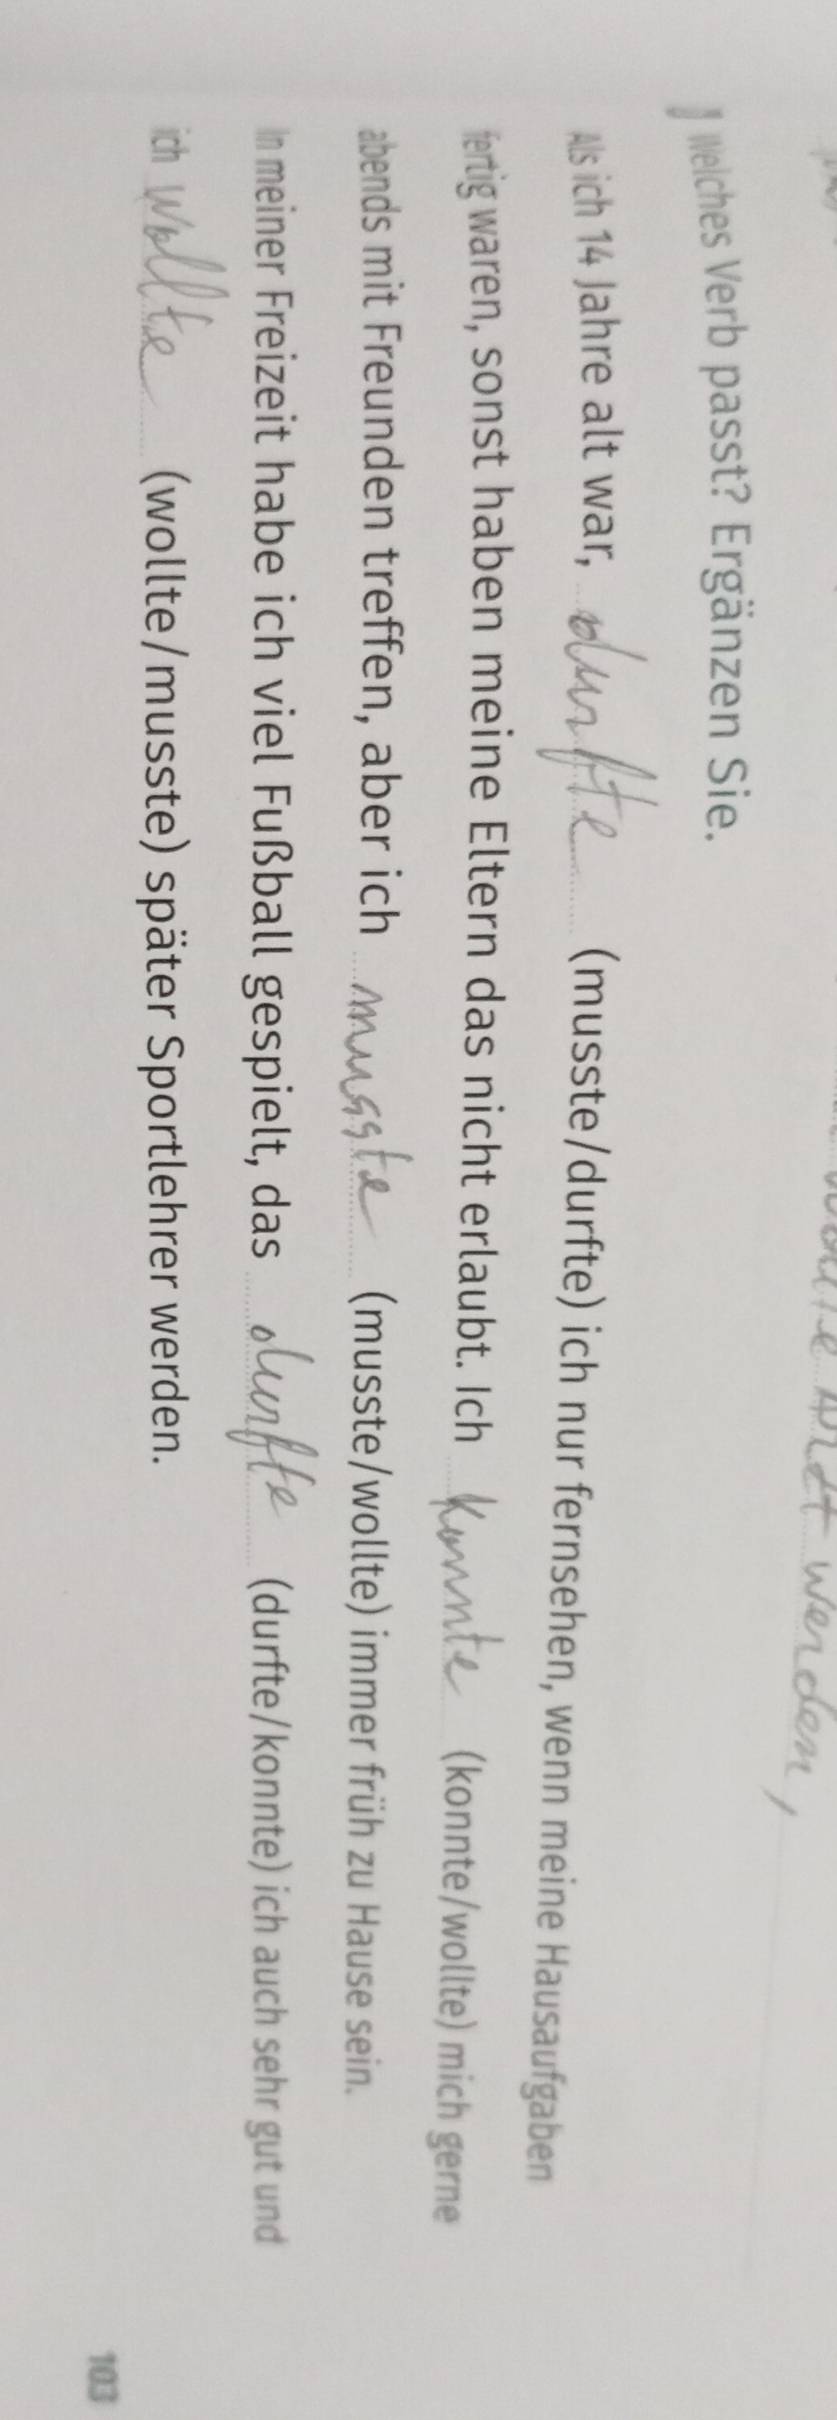 Welches Verb passt? Ergänzen Sie.
Als ich 14 Jahre alt war, durfte (musste/durfte) ich nur fernsehen, wenn meine Hausaufgaben
fertig waren, sonst haben meine Eltern das nicht erlaubt. Ich konnte (konnte/wollte) mich gerne
abends mit Freunden treffen, aber ich musste (musste/wollte) immer früh zu Hause sein.
In meiner Freizeit habe ich viel Fußball gespielt, das durfte (durfte/konnte) ich auch sehr gut und
ich wollte (wollte/musste) später Sportlehrer werden.
103